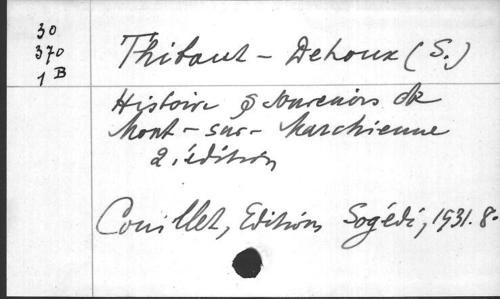 30
370
1 B
Thibaut - Dehoux (S.)
Histoire & souvenirs de
Mont-sur-Marchienne
2. édition
Couillet, Editions Sogédi, 1931. 8.